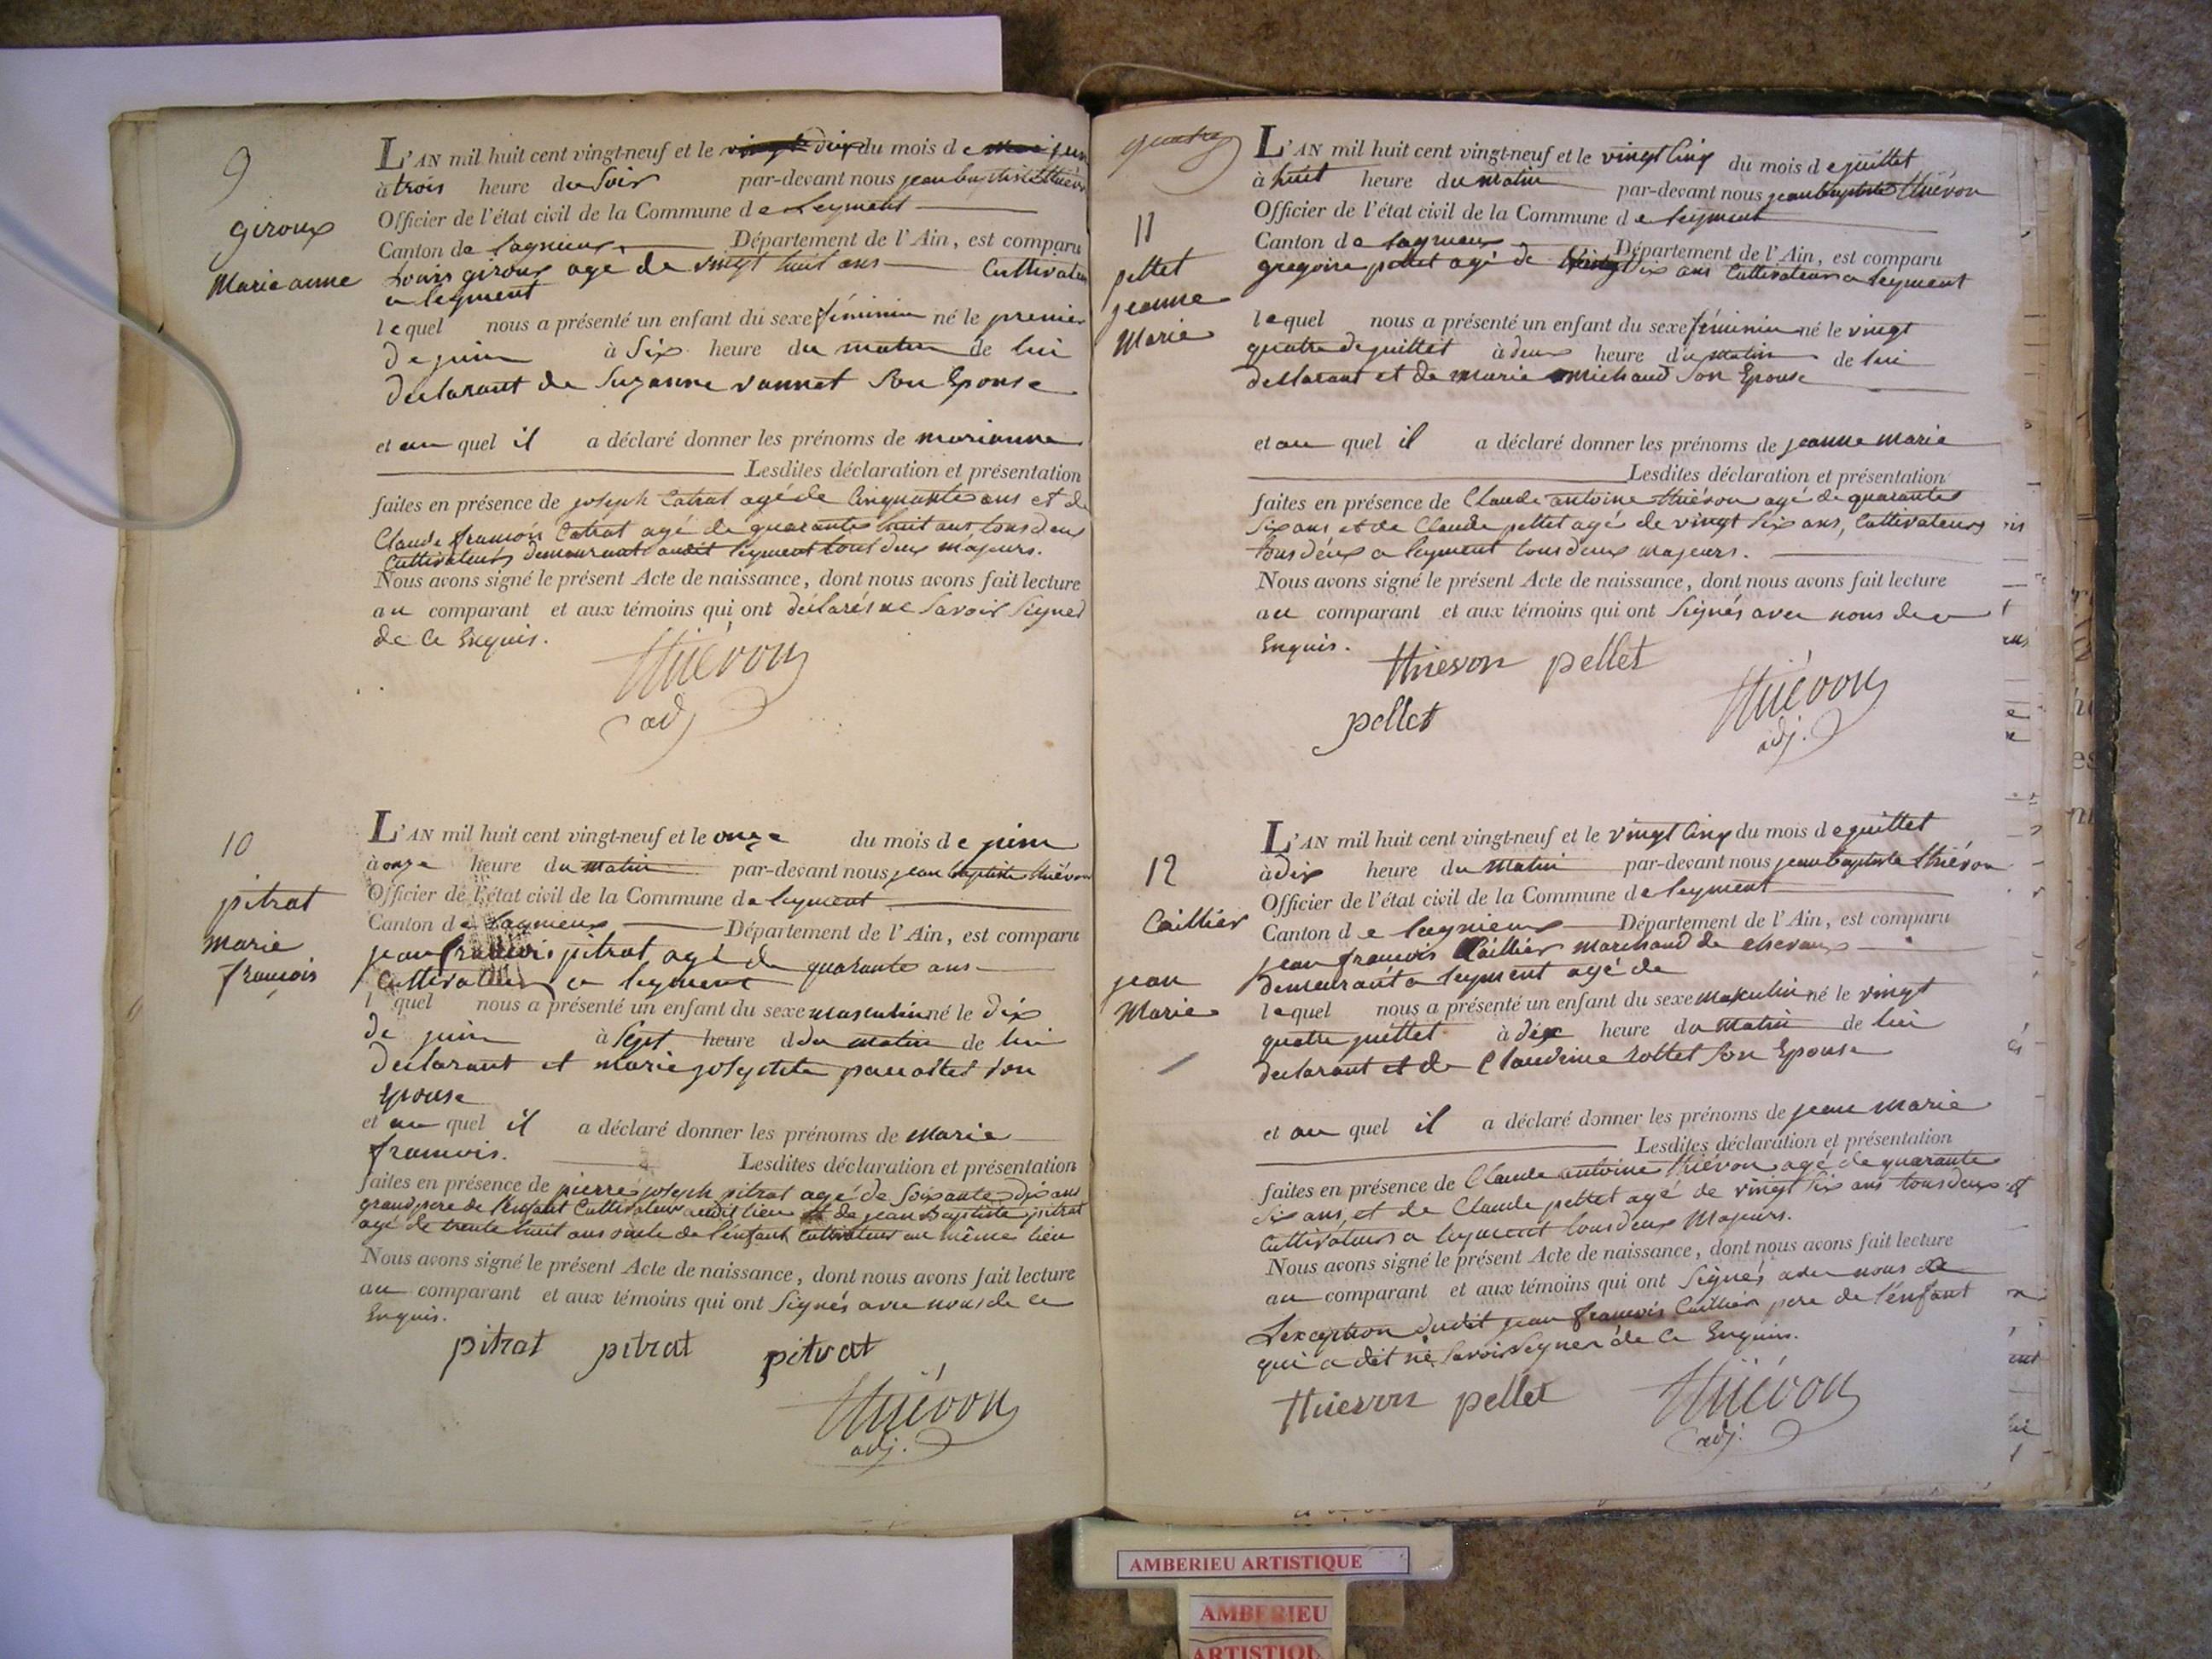 9
giroux
Marie anne
L'AN mil huit cent vingt-neuf et le deux du mois de juin
à trois heure du Soir par-devant nous jean baptiste thiévon
Officier de l'état civil de la Commune de leyment
Canton de lagnieux Département de l'Ain, est comparu
Louis giroux agé de vingt huit ans Cultivateur
a leyment
lequel nous a présenté un enfant du sexe féminin né le premier
de juin à Six heure du matin de lui
declarant de Suzanne vannet Son Epouse
et au quel il a déclaré donner les prénoms de marianne
Lesdites déclaration et présentation
faites en présence de joseph Catrat agé de Cinquante ans et de
Claude francois Catrat agé de quarante huit ans tous deux
Cultivateurs demeurant audit leyment tout deux majeurs.
Nous avons signé le présent Acte de naissance, dont nous avons fait lecture
au comparant et aux témoins qui ont déclarés ne Savoir Signer
de Ce Enquis.
thiévon
adj
10
pitrat
marie
francois
L'AN mil huit cent vingt-neuf et le onze du mois de juin
à onze heure du matin par-devant nous jean baptiste thiévon
Officier de l'état civil de la Commune de leyment
Canton de Lagnieux Département de l'Ain, est comparu
jean francois pitrat agé de quarante ans
Cultivateur a leyment
l quel nous a présenté un enfant du sexe masculin né le dix
de juin à Sept heure d du matin de lui
declarant et marie son
Epouse
et au quel il a déclaré donner les prénoms de marie
francois. Lesdites déclaration et présentation
faites en présence de pierre joseph pitrat agé de Soixante dix ans
grand pere de l'enfant Cultivateur audit lieu et de jean Baptiste pitrat
agé de trente huit ans oncle de l'enfant Cultivateur au même lieu
Nous avons signé le présent Acte de naissance, dont nous avons fait lecture
au comparant et aux témoins qui ont Signés avec nous de ce
Enquis.
pitrat pitrat pitrat
thiévon
adj.
quatre
11
pellet
jeanne
Marie
L'AN mil huit cent vingt-neuf et le vingt Cinq du mois de juillet
à huit heure du matin par-devant nous jean baptiste thiévon
Officier de l'état civil de la Commune de leyment
Canton de lagnieux Département de l'Ain, est comparu
gregoire pellet agé de dix ans Cultivateur a leyment
lequel nous a présenté un enfant du sexe féminin né le vingt
quatre de juillet à deux heure du matin de lui
declarant et de marie michaud Son Epouse
et au quel il a déclaré donner les prénoms de jeanne marie
Lesdites déclaration et présentation
faites en présence de Claude antoine thiévon agé de quarante
Six ans et de Claude pellet agé de vingt Six ans, Cultivateurs
tous deux a leyment tous deux majeurs.
Nous avons signé le présent Acte de naissance, dont nous avons fait lecture
au comparant et aux témoins qui ont Signés avec nous de ce
Enquis.
thievon pellet
pellet
thiévon
adj.
12
Caillier
jean
Marie
L'AN mil huit cent vingt-neuf et le vingt Cinq du mois de juillet
à dix heure du matin par-devant nous jean baptiste thiévon
Officier de l'état civil de la Commune de leyment
Canton de lagnieux Département de l'Ain, est comparu
jean francois Caillier marchand de chevaux
demeurant a leyment agé de
lequel nous a présenté un enfant du sexe masculin né le vingt
quatre juillet à dix heure du matin de lui
declarant et de Claudine Son Epouse
et au quel il a déclaré donner les prénoms de jean marie
Lesdites déclaration et présentation
faites en présence de Claude antoine thiévon agé de quarante
Six ans, et de Claude pellet agé de vingt Six ans tous deux
Cultivateurs a leyment tous deux Majeurs.
Nous avons signé le présent Acte de naissance, dont nous avons fait lecture
au comparant et aux témoins qui ont Signés avec nous a
L'exception dudit jean francois Caillier pere de l'enfant
qui a dit ne Savoir Signer de Ce Enquis.
thievon pellet
thiévon
adj.
AMBERIEU ARTISTIQUE
AMBERIEU
ARTISTIQU